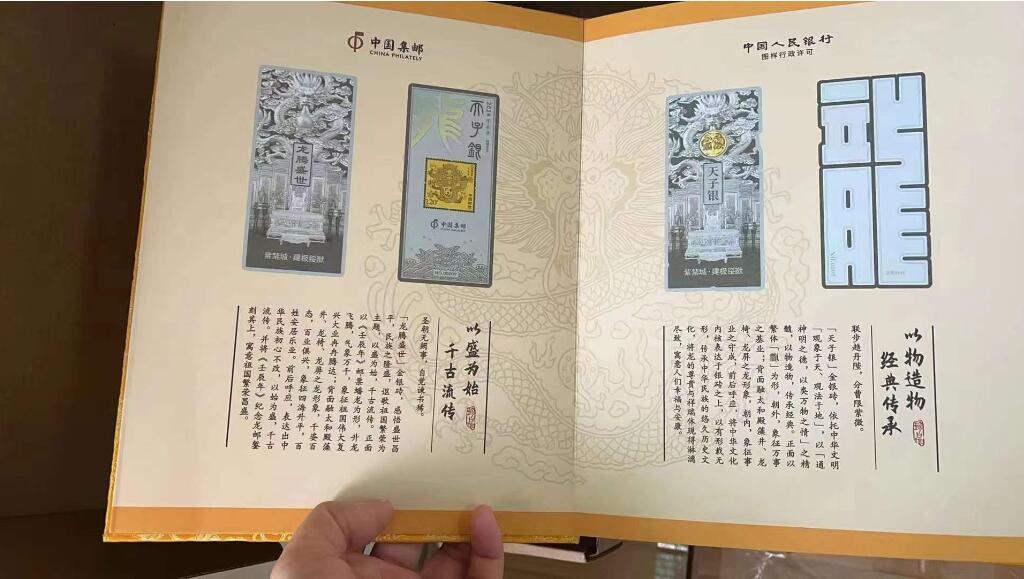 中国集邮
CHINA PHILATELY
龙腾盛世
紫禁城·建极绥猷
天子银
1.20
中国集邮
以盛为始
千古流传
圣朝无阙事，自觉谏书稀。
「龙腾盛世」金银砖，感悟盛世昌
平，民族之隆盛，讴歌祖国繁荣为
主题，以盛为始，千古流传。正面
以《壬辰年》邮票蟠龙为形，升龙
飞腾，气象万千，象征祖国伟大复
兴大业冉冉腾达；背面融太和殿藻
井，龙椅，龙屏之龙形象，千姿百
态，百业俱兴，象征四海升平，百
姓安居乐业。前后呼应，表达出中
华民族初心不改，以始为盛，千古
流传。并将《壬辰年》纪念龙邮錾
刻其上，寓意祖国繁荣昌盛。
中国人民银行
图样行政许可
天子银
紫禁城·建极绥猷
龍
以物造物
经典传承
联步趋丹陛，分曹限紫微。
「天子银」金银砖，依托中华文明
「观象于天，观法于地」，以「通
神明之德，以类万物之情」之精
髓，以物造物，传承经典。正面以
繁体“龍”为形，朝外，象征万事
之基业；背面融太和殿藻井、龙
椅、龙屏之龙形象，朝内，象征事
业之守成，前后呼应，将中华文化
内核表达于银砖之上，以有形载无
形，传承中华民族的悠久历史文
化，将龙的尊贵与祥瑞体现得淋漓
尽致，寓意人们幸福与安康。